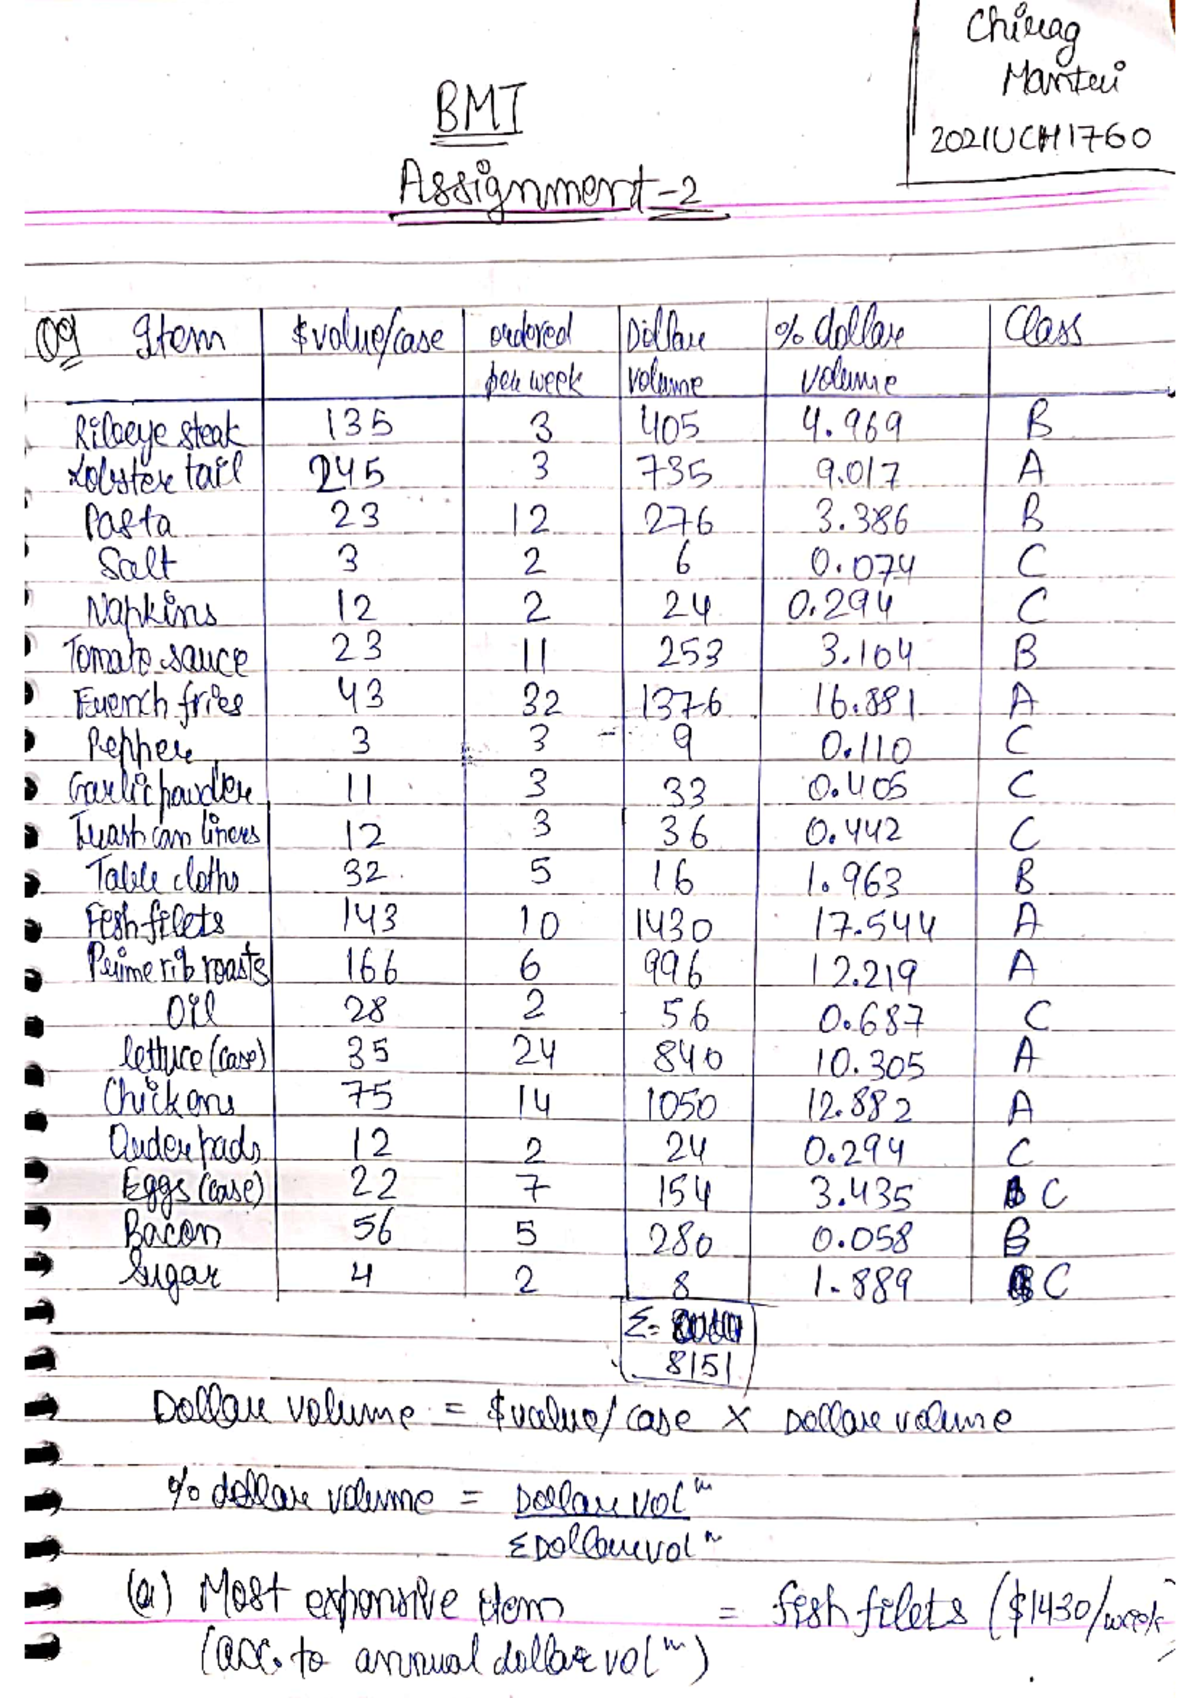 Chirag
Mantri
2021UCH1760
BMT
Assignment-2
Q9 Item $value/case ordered per week Dollar volume % dollar volume Class
Ribeye steak 135 3 405 4.969 B
Lobster tail 245 3 735 9.017 A
Pasta 23 12 276 3.386 B
Salt 3 2 6 0.074 C
Napkins 12 2 24 0.294 C
Tomato sauce 23 11 253 3.104 B
French fries 43 32 1376 16.881 A
Pepper 3 3 9 0.110 C
Garlic powder 11 3 33 0.405 C
Trash can liners 12 3 36 0.442 C
Table cloths 32 5 16 1.963 B
Fish filets 143 10 1430 17.544 A
Prime rib roasts 166 6 996 12.219 A
Oil 28 2 56 0.687 C
lettuce (case) 35 24 840 10.305 A
Chickens 75 14 1050 12.882 A
Order pads 12 2 24 0.294 C
Eggs (case) 22 7 154 3.435 C
Bacon 56 5 280 0.058 B
Sugar 4 2 8 1.889 C
Σ = 8151
Dollar volume = $value/case × Dollar volume
% dollar volume = Dollar volᵐ
ΣDollar volᵐ
(a) Most expensive item = fish filets ($1430/week
(acc. to annual dollar volᵐ)